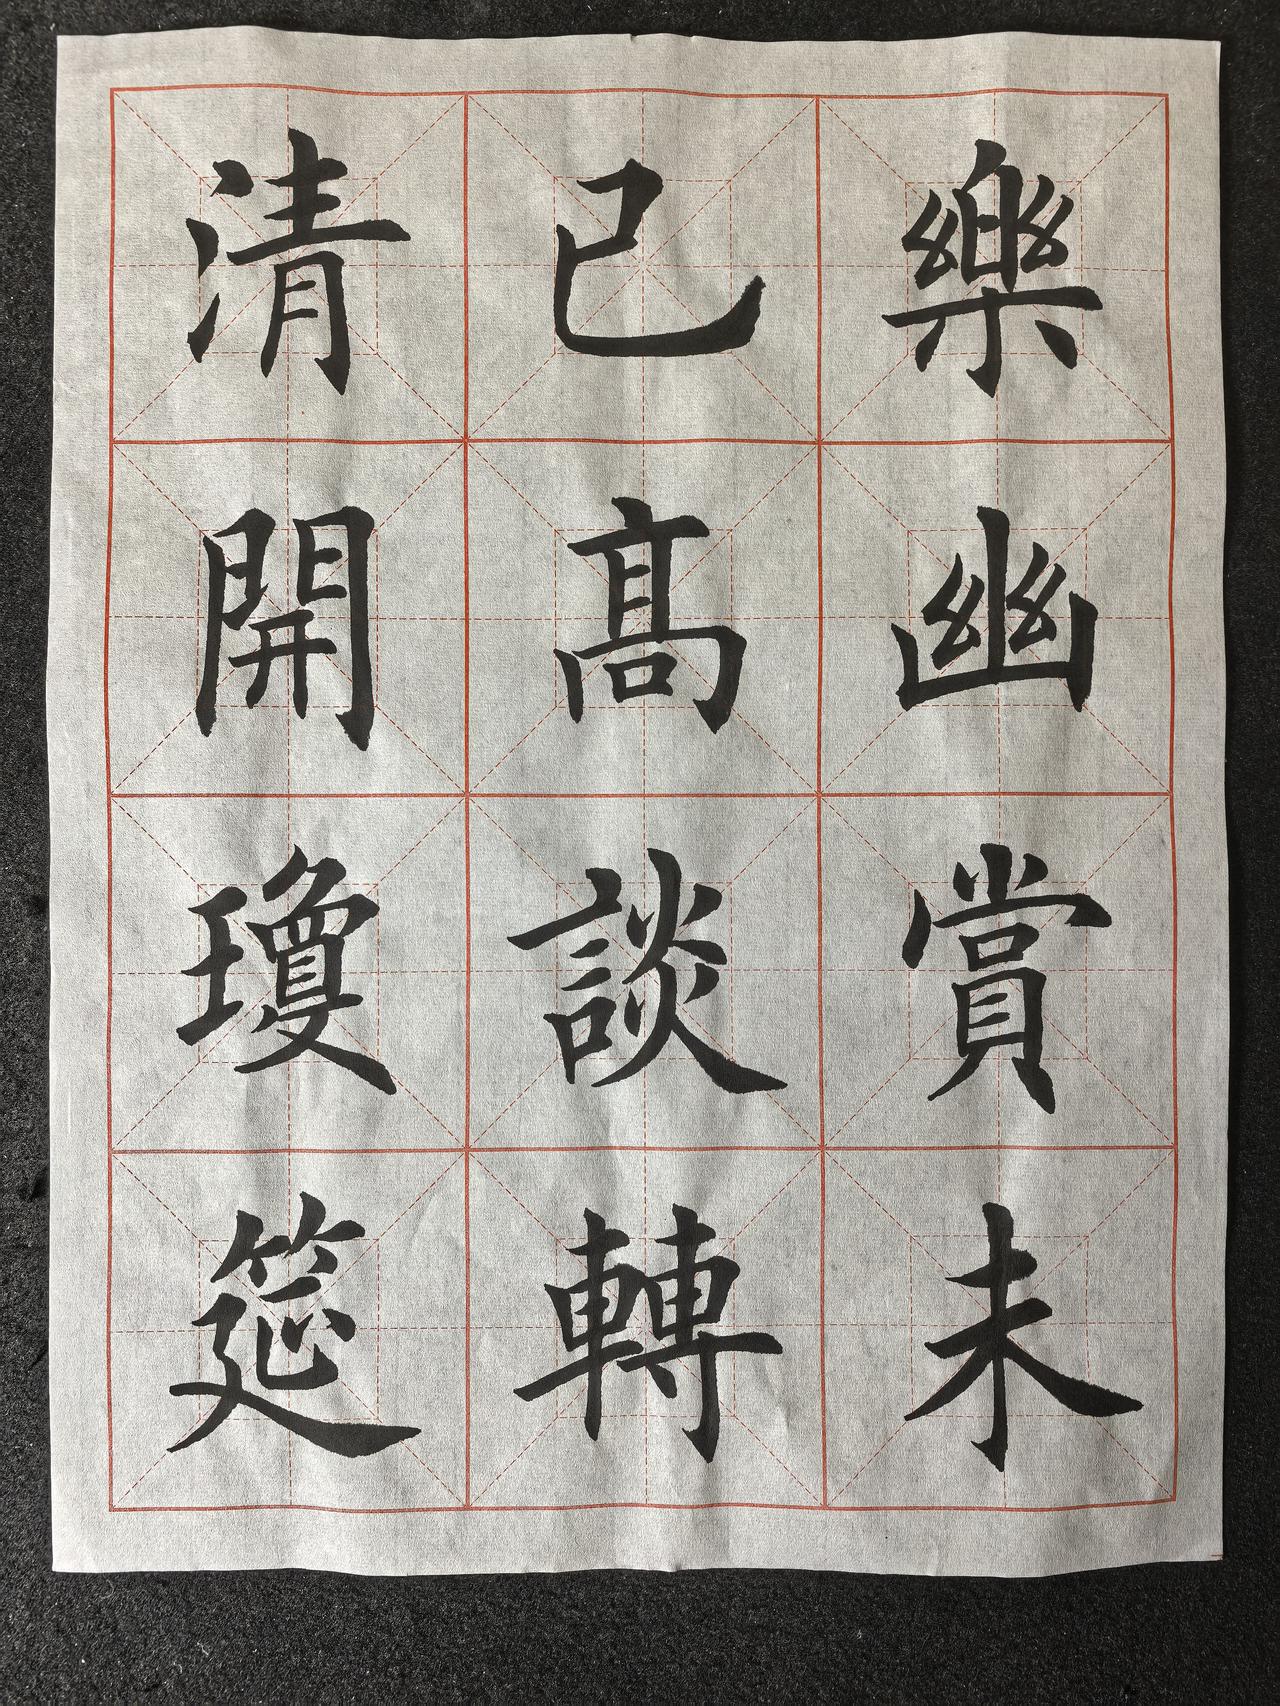 樂幽賞未
已高談轉
清開瓊筵